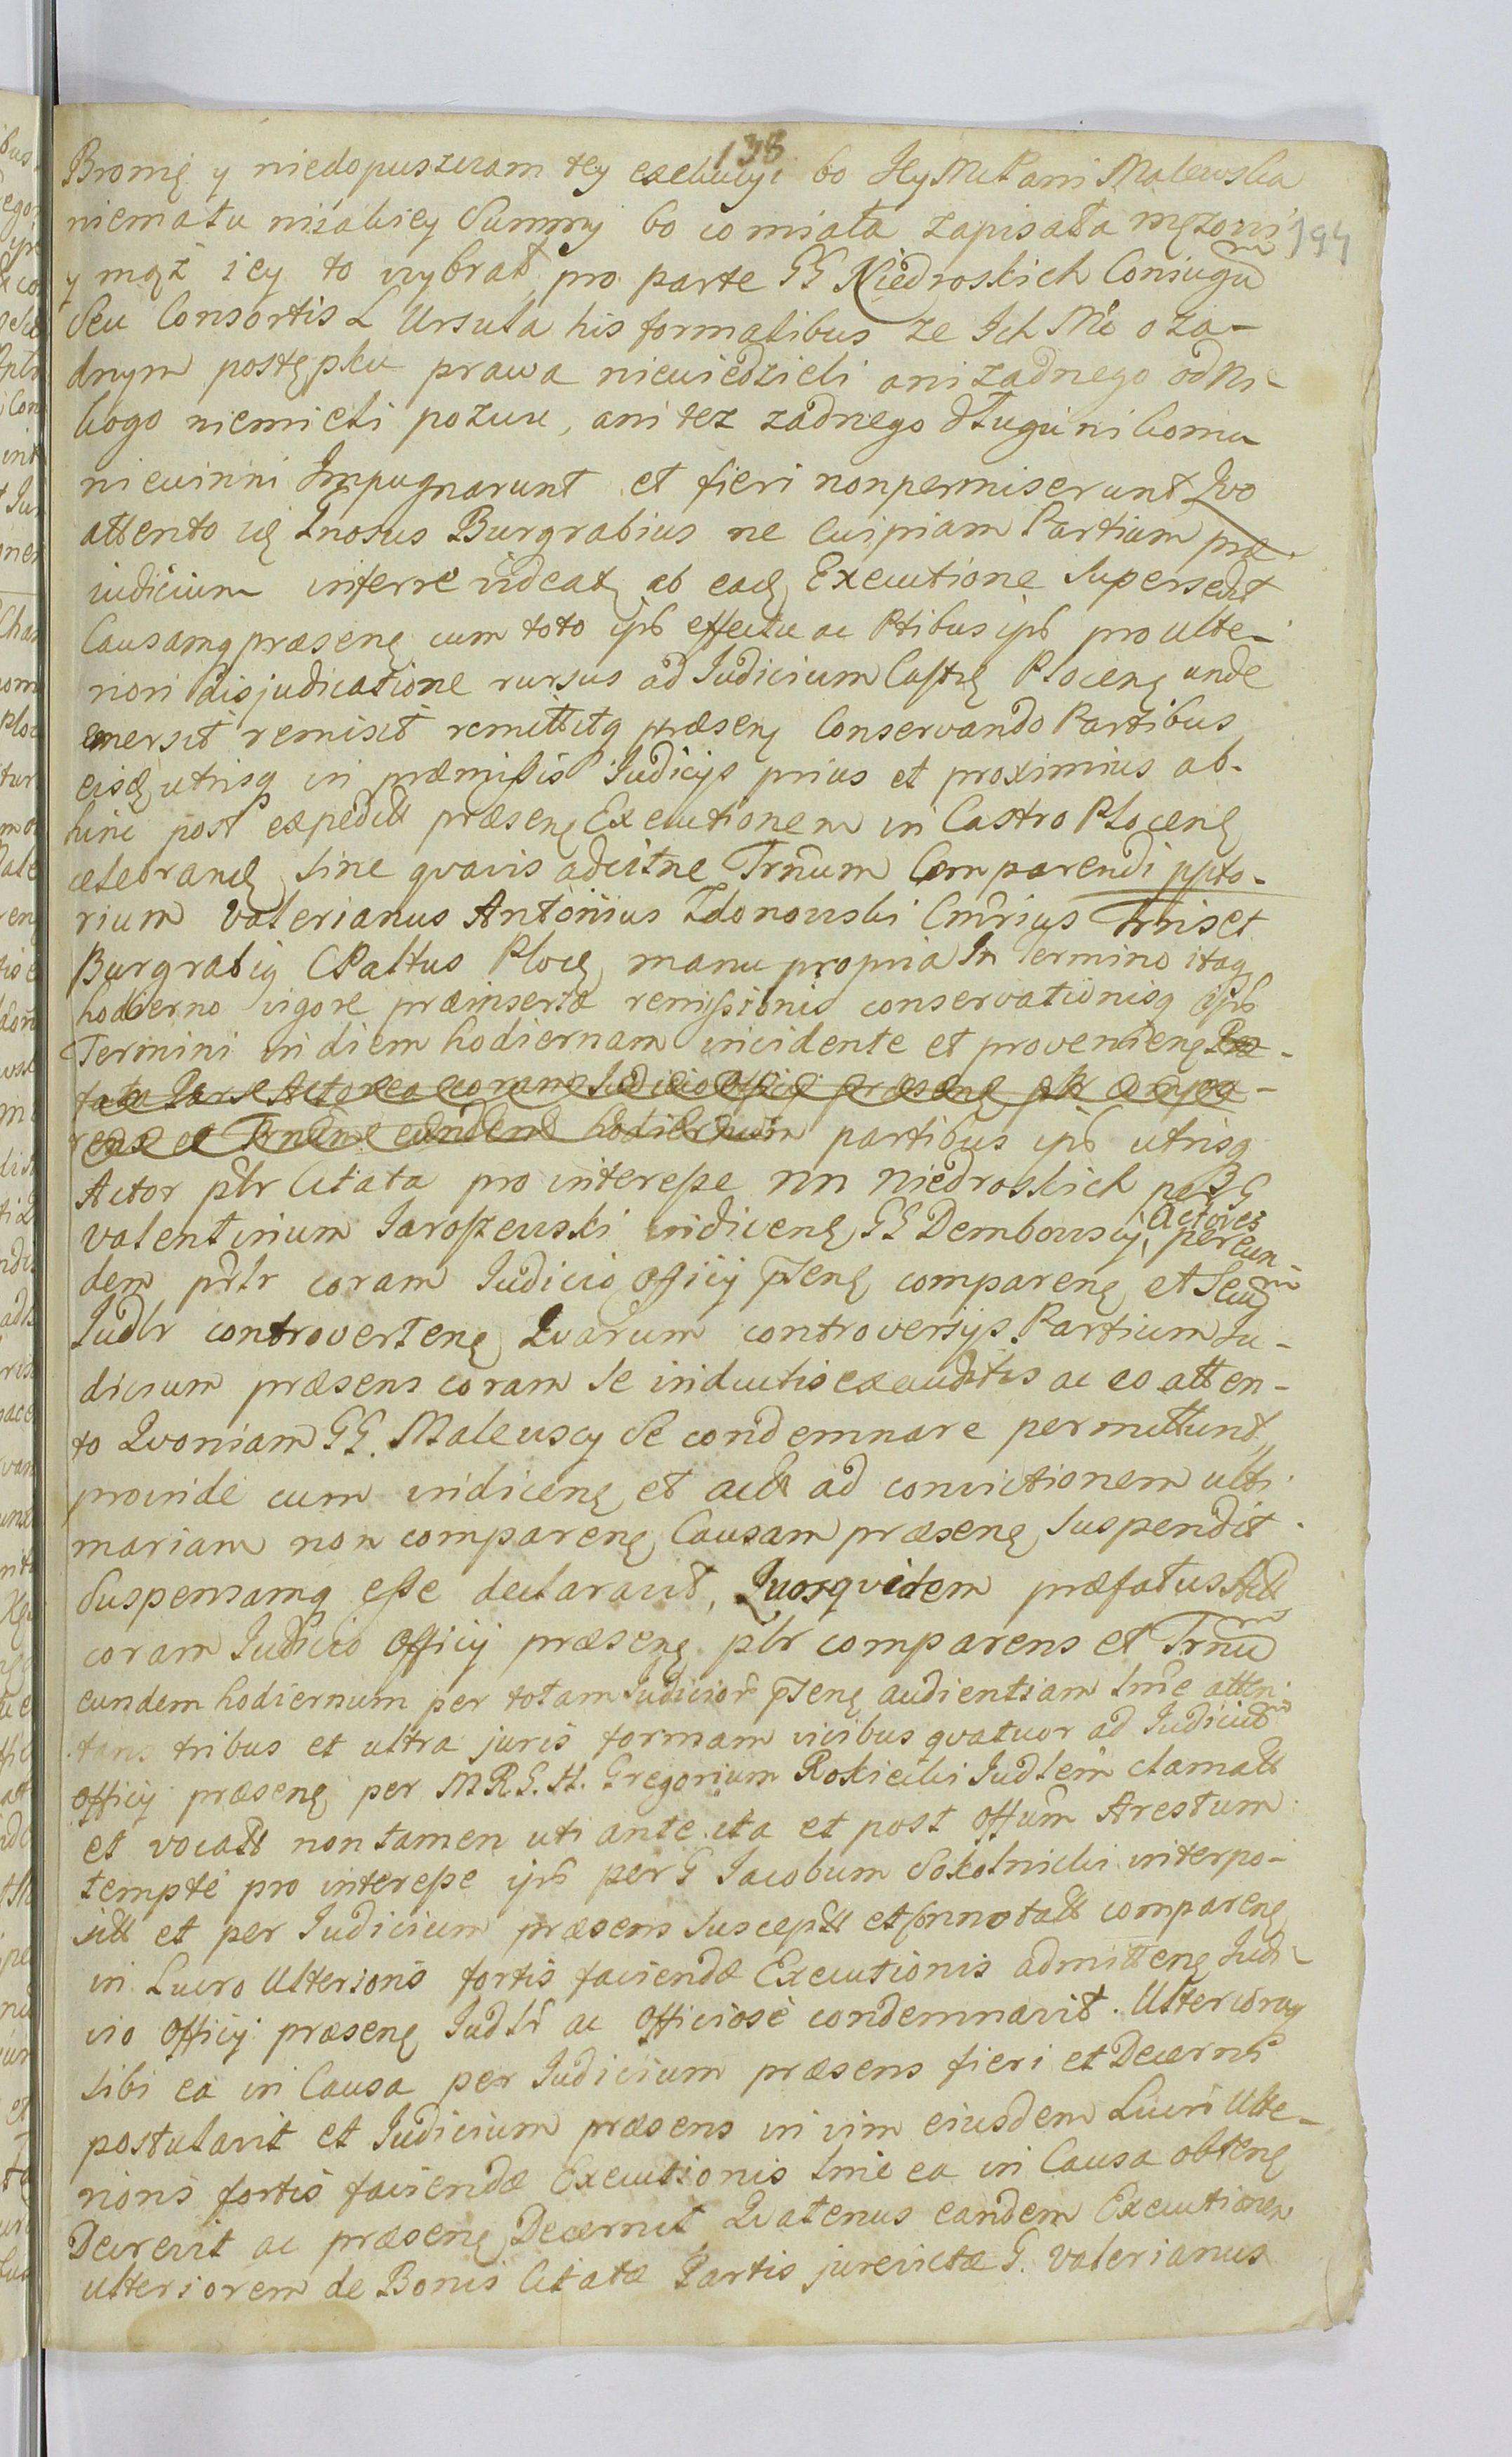 138
Bronię y niedopuszczam tey exekucyi bo Jey Mć Pani Malewska
niemała niżakiey Summy bo co miała zapisała mężowi
194
y mąż iey to wybrał pro parte GG Niedroskich Coniugu͞m
Seu Consortis L Ursula his formalibus ze Ich Mć o za-
dnym postępku prawa niewiedzieli ani zadnego od ni-
kogo niemieli pozwu, ani tez zadnego długu nikomu
niewinni Impugnarunt et fieri nonpermiserunt Quo
attento idę Gnosus Burgrabius ne cuipiam Partium præ-
iudicium inferre videatę ab eadę Executione Supersedit
Causamq præsenę cum toto ipś effectu ac Ptibus ipś pro ulte-
riori disjudicatione rursus ad Iudicium Castrę Plocenę unde
emersit remisit remittitq præsenę Conservando Partibus
eisdę utrisq in præmissis Iudicijs prius et proximius ab-
hinc post expeditt præsenę Executionem in Castro Plocenę
celebrandę sine quavis adcitne Trnum Comparendi ppto-
rium Valerianus Antonius Zdonowski Cmrius Trriset
Burgrabię CPaltus Plocę manu propria In Termino itaq
hodierno vigore præinsertæ remissionis conservationisq ipś
Termini in diem hodiernam incidente et provenienę
partibus ipś utrisq
Actor pltr Citata pro interesse nn Niedroskich per G
Valentinum Jaroszewski indicenę GG Dembowscy Actores per eun-
dem pltr coram Iudicio Officij p̃senę comparenę et Secu͞m
Iudlr controvertenę Quarum controversijs Partium Iu-
dicium præsens coram se inductis exauditis ac eo atten-
to Quoniam GG. Malewscy se condemnare permittunt
proinde cum indicenę et actt ad convictionem ulti-
mariam non comparenę Causam præsenę Suspendit
Suspensamq esse declaravit, Quosquidem præfatus Actt
coram Iudicio Officij præsenę pltr comparens et Trnu͞m
eundem hodiernum per totam Iudicior̃ p̃senę audientiam lm̃e atten-
tans tribus et ultra juris formam vicibus quatuor ad Iudiciu͞m
Officij præsenę per M.R.G.H. Gregorium Rokicki Iudlem clamatt
et vocatt non tamen uti ante ita et post Offum Arestum
tempte pro interesse ipś per G Jacobum Sokolnicki interpo-
sitt et per Iudicium præsens susceptt et connotatt comparenę
in Lucro Ulterioris fortis faciendæ Executionis admittenę Iudi-
cio Officij præsenę Iudlr ac Officiose condemnavit. Ulterioraq
sibi ea in Causa per Iudicium præsens fieri et Decerni
postulavit et Iudicium præsens in vim eiusdem Lucri Ulte-
rioris fortis faciendæ Executionis lmie ea in Causa obtenę
Decrevit ac præsenę Decernit Quatenus eandem Executionem
ulteriorem de Bonis Citatæ Partis jurevictæ G. Valerianus